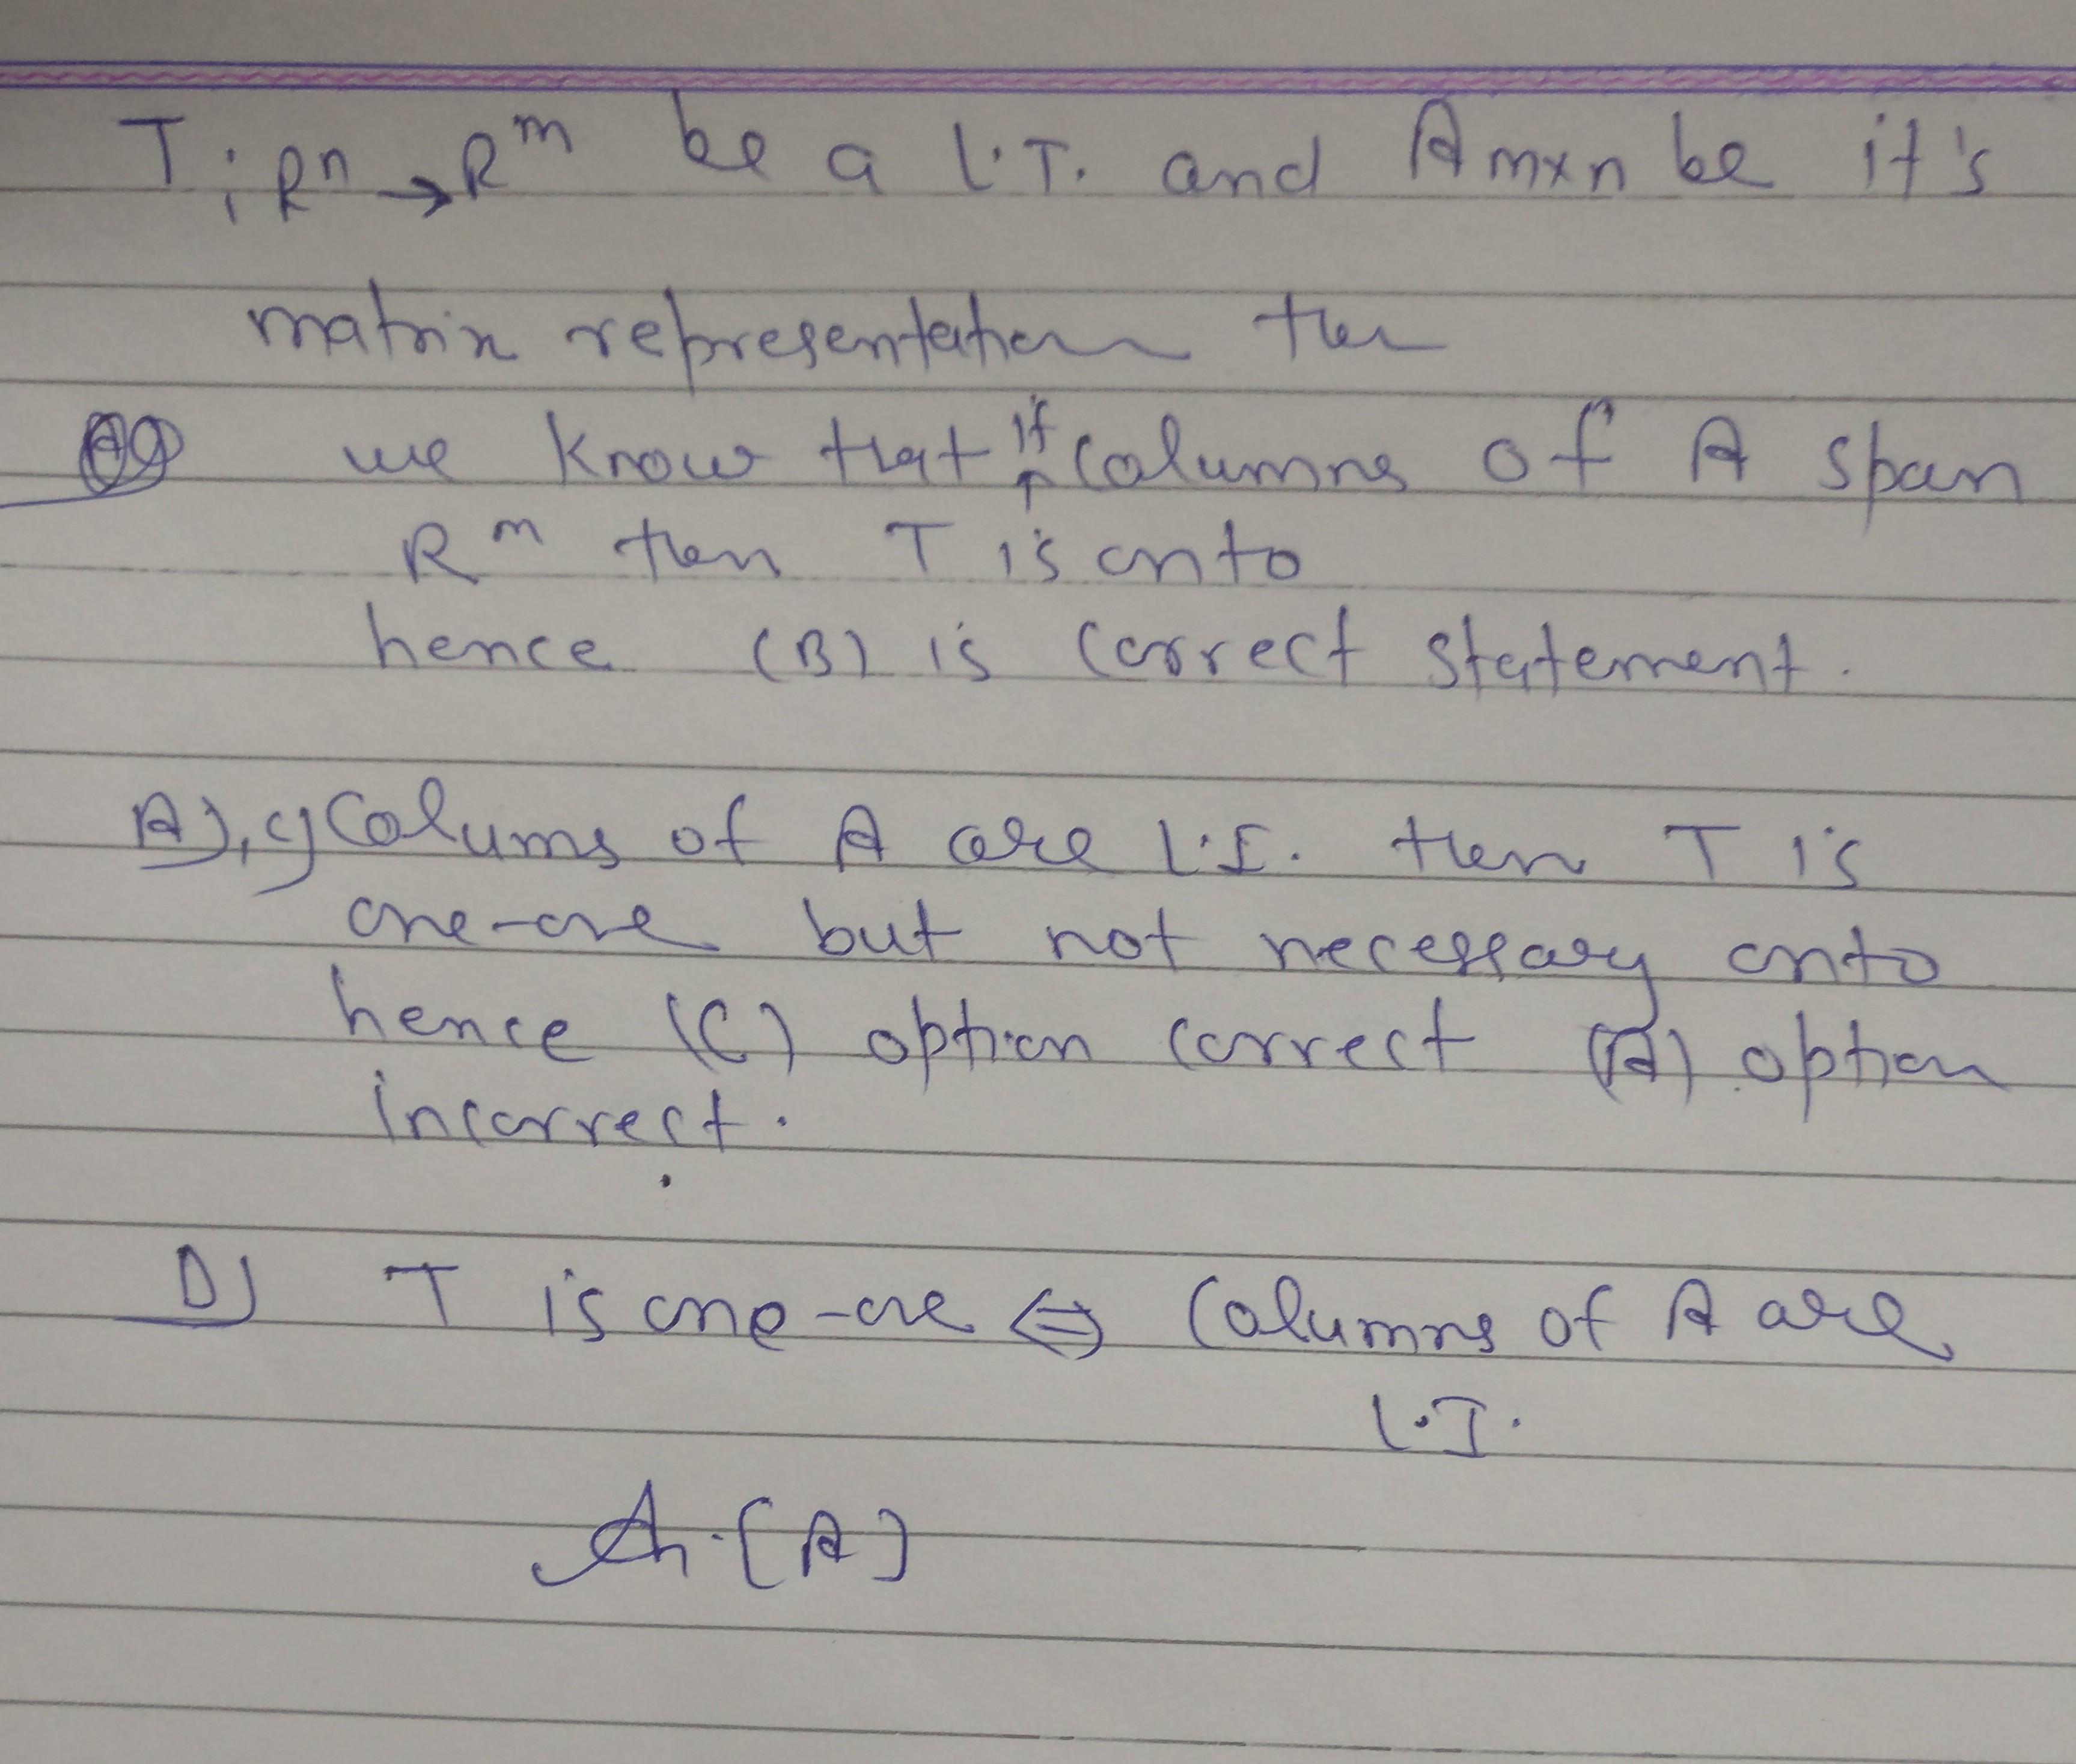 T : Rⁿ → Rᵐ be a L.T. and Amxn be it's
matrix representation then
we know that if columns of A span
Rᵐ then T is onto
hence (B) is correct statement.
A), C) Colums of A are L.I. then T is
one-one but not necessary onto
hence (C) option correct (A) option
incorrect.
D) T is one-one ⇔ Columns of A are
L.I.
An. (A)